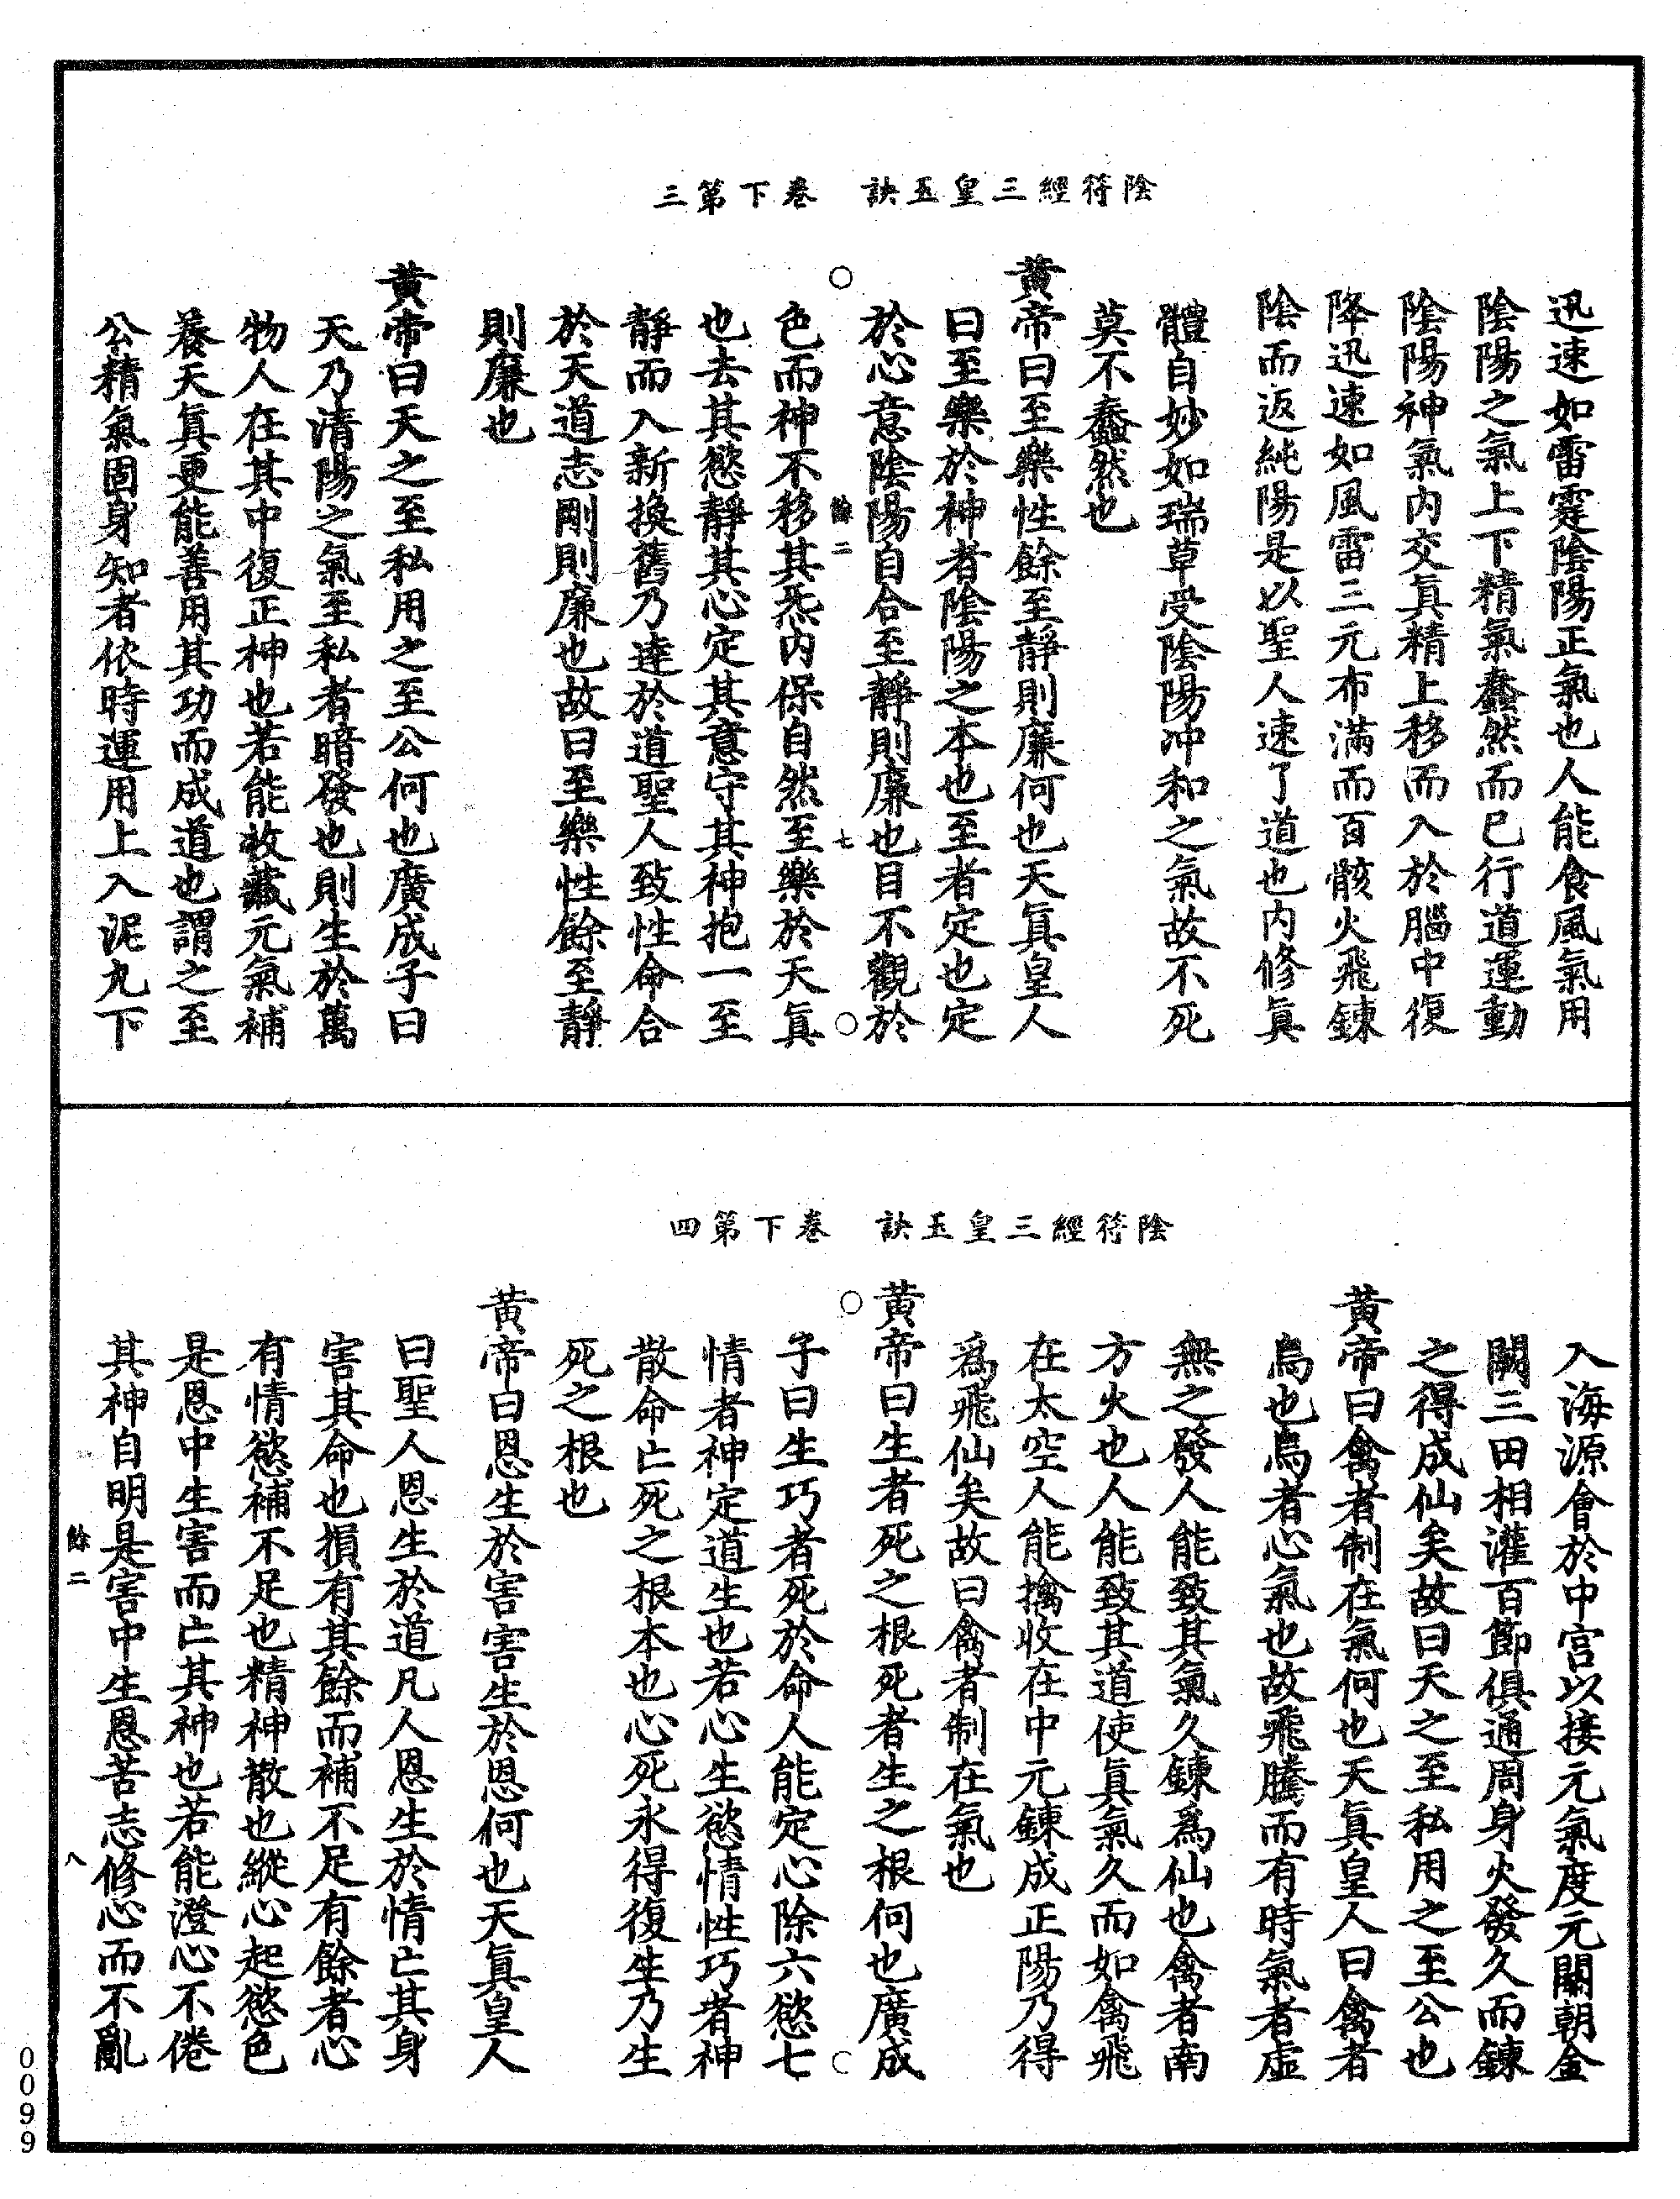 陰符經三皇玉訣　卷下第三
迅速如雷霆陰陽正氣也人能食風氣用
陰陽之氣上下精氣蠢然而已行道運動
陰陽神氣內交眞精上移而入於腦中復
降迅速如風雷三元布滿而百骸火飛鍊
陰而返純陽是以聖人速了道也內修眞
體自妙如瑞草受陰陽冲和之氣故不死
莫不蠢然也
黃帝曰至樂性餘至靜則廉何也天眞皇人
曰至樂於神者陰陽之本也至者定也定
於心意陰陽自合至靜則廉也目不觀於
餘二　七
色而神不移其炁內保自然至樂於天眞
也去其慾靜其心定其意守其神抱一至
靜而入新換舊乃達於道聖人致性命合
於天道志剛則廉也故曰至樂性餘至靜
則廉也
黃帝曰天之至私用之至公何也廣成子曰
天乃清陽之氣至私者暗發也則生於萬
物人在其中復正神也若能收藏元氣補
養天眞更能善用其功而成道也謂之至
公精氣固身知者依時運用上入泥丸下
陰符經三皇玉訣　卷下第四
入海源會於中宮以接元氣度元關朝金
闕三田相灌百節俱通周身火發久而鍊
之得成仙矣故曰天之至私用之至公也
黃帝曰禽者制在氣何也天眞皇人曰禽者
烏也烏者心氣也故飛騰而有時氣者虛
無之發人能致其氣久鍊爲仙也禽者南
方火也人能致其道使眞氣久而如禽飛
在太空人能擒收在中元鍊成正陽乃得
爲飛仙矣故曰禽者制在氣也
黃帝曰生者死之根死者生之根何也廣成
子曰生巧者死於命人能定心除六慾七
情者神定道生也若心生慾情性巧者神
散命亡死之根本也心死永得復生乃生
死之根也
黃帝曰恩生於害害生於恩何也天眞皇人
曰聖人恩生於道凡人恩生於情亡其身
害其命也損有其餘而補不足有餘者心
有情慾補不足也精神散也縱心起慾色
是恩中生害而亡其神也若能澄心不倦
其神自明是害中生恩苦志修心而不亂
餘二　八
0099